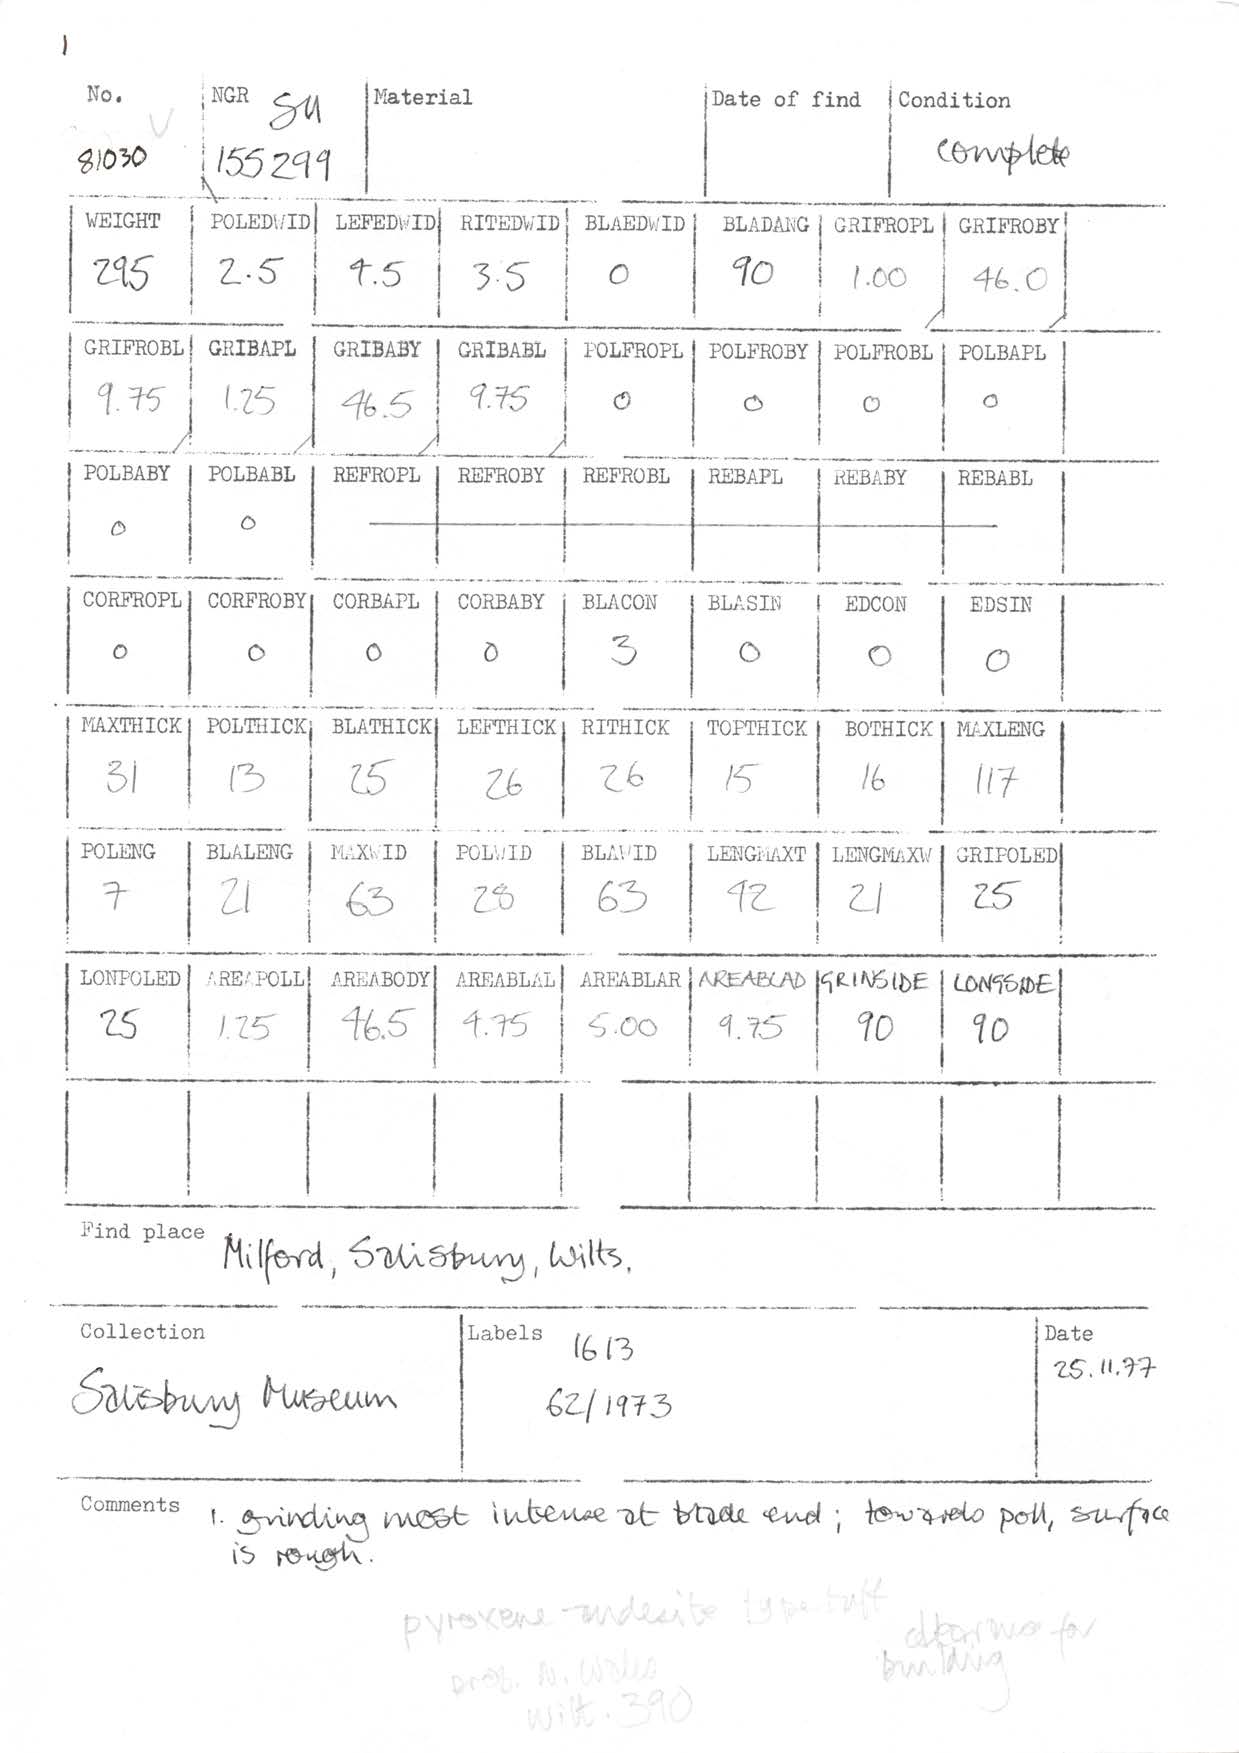 1
No. NGR SU Material Date of find Condition
81030 155299 complete
WEIGHT POLEDWID LEFEDWID RITEDWID BLAEDWID BLADANG GRIFROPL GRIFROBY
295 2.5 4.5 3.5 0 90 1.00 46.0
GRIFROBL GRIBAPL GRIBABY GRIBABL POLFROPL POLFROBY POLFROBL POLBAPL
9.75 1.25 46.5 9.75 0 0 0 0
POLBABY POLBABL REFROPL REFROBY REFROBL REBAPL REBABY REBABL
0 0
CORFROPL CORFROBY CORBAPL CORBABY BLACON BLASIN EDCON EDSIN
0 0 0 0 3 0 0 0
MAXTHICK POLTHICK BLATHICK LEFTHICK RITHICK TOPTHICK BOTHICK MAXLENG
31 13 25 26 26 15 16 117
POLENG BLALENG MAXWID POLWID BLAWID LENGMAXT LENGMAXW GRIPOLED
7 21 63 28 63 42 21 25
LONPOLED AREAPOLL AREABODY AREABLAL AREABLAR AREABLAD GRINSIDE LONGSIDE
25 1.25 46.5 4.75 5.00 9.75 90 90
Find place Milford, Salisbury, Wilts.
Collection Labels 1613 Date
Salisbury Museum 62/1973 25.11.77
Comments 1. grinding most intense at blade end; towards poll, surface
is rough.
pyroxene-andesite type tuff
for
building
prob. N. Wales
Wilt. 390